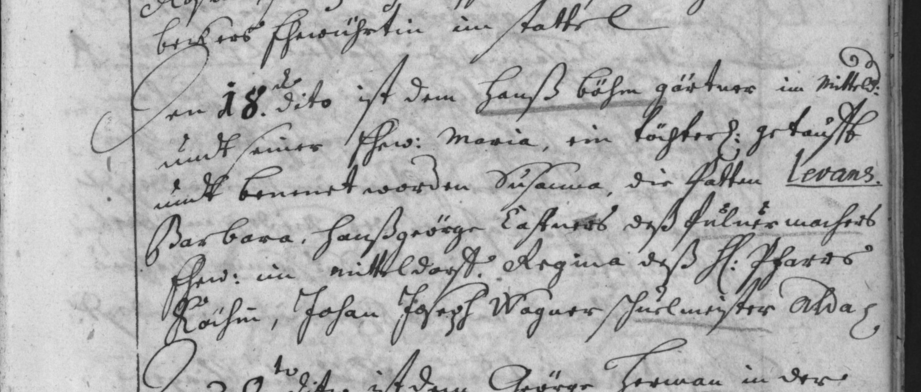 beckers Ehewührtin im stättel
Den 18. dito ist dem Hanß böhm gärtner im Mitteld:
undt seiner Ehew: Maria, ein töchterl: getaufft
undt benenet worden Susanna, die Patten levans.
Barbara, Hanßgeörge Castners deß
Ehew: im mitteldorff. Regina deß H: Pfarrs
Köchin, Johan Joseph Wagner schuelmeister alda
dito ist dem Geörge Herman in der